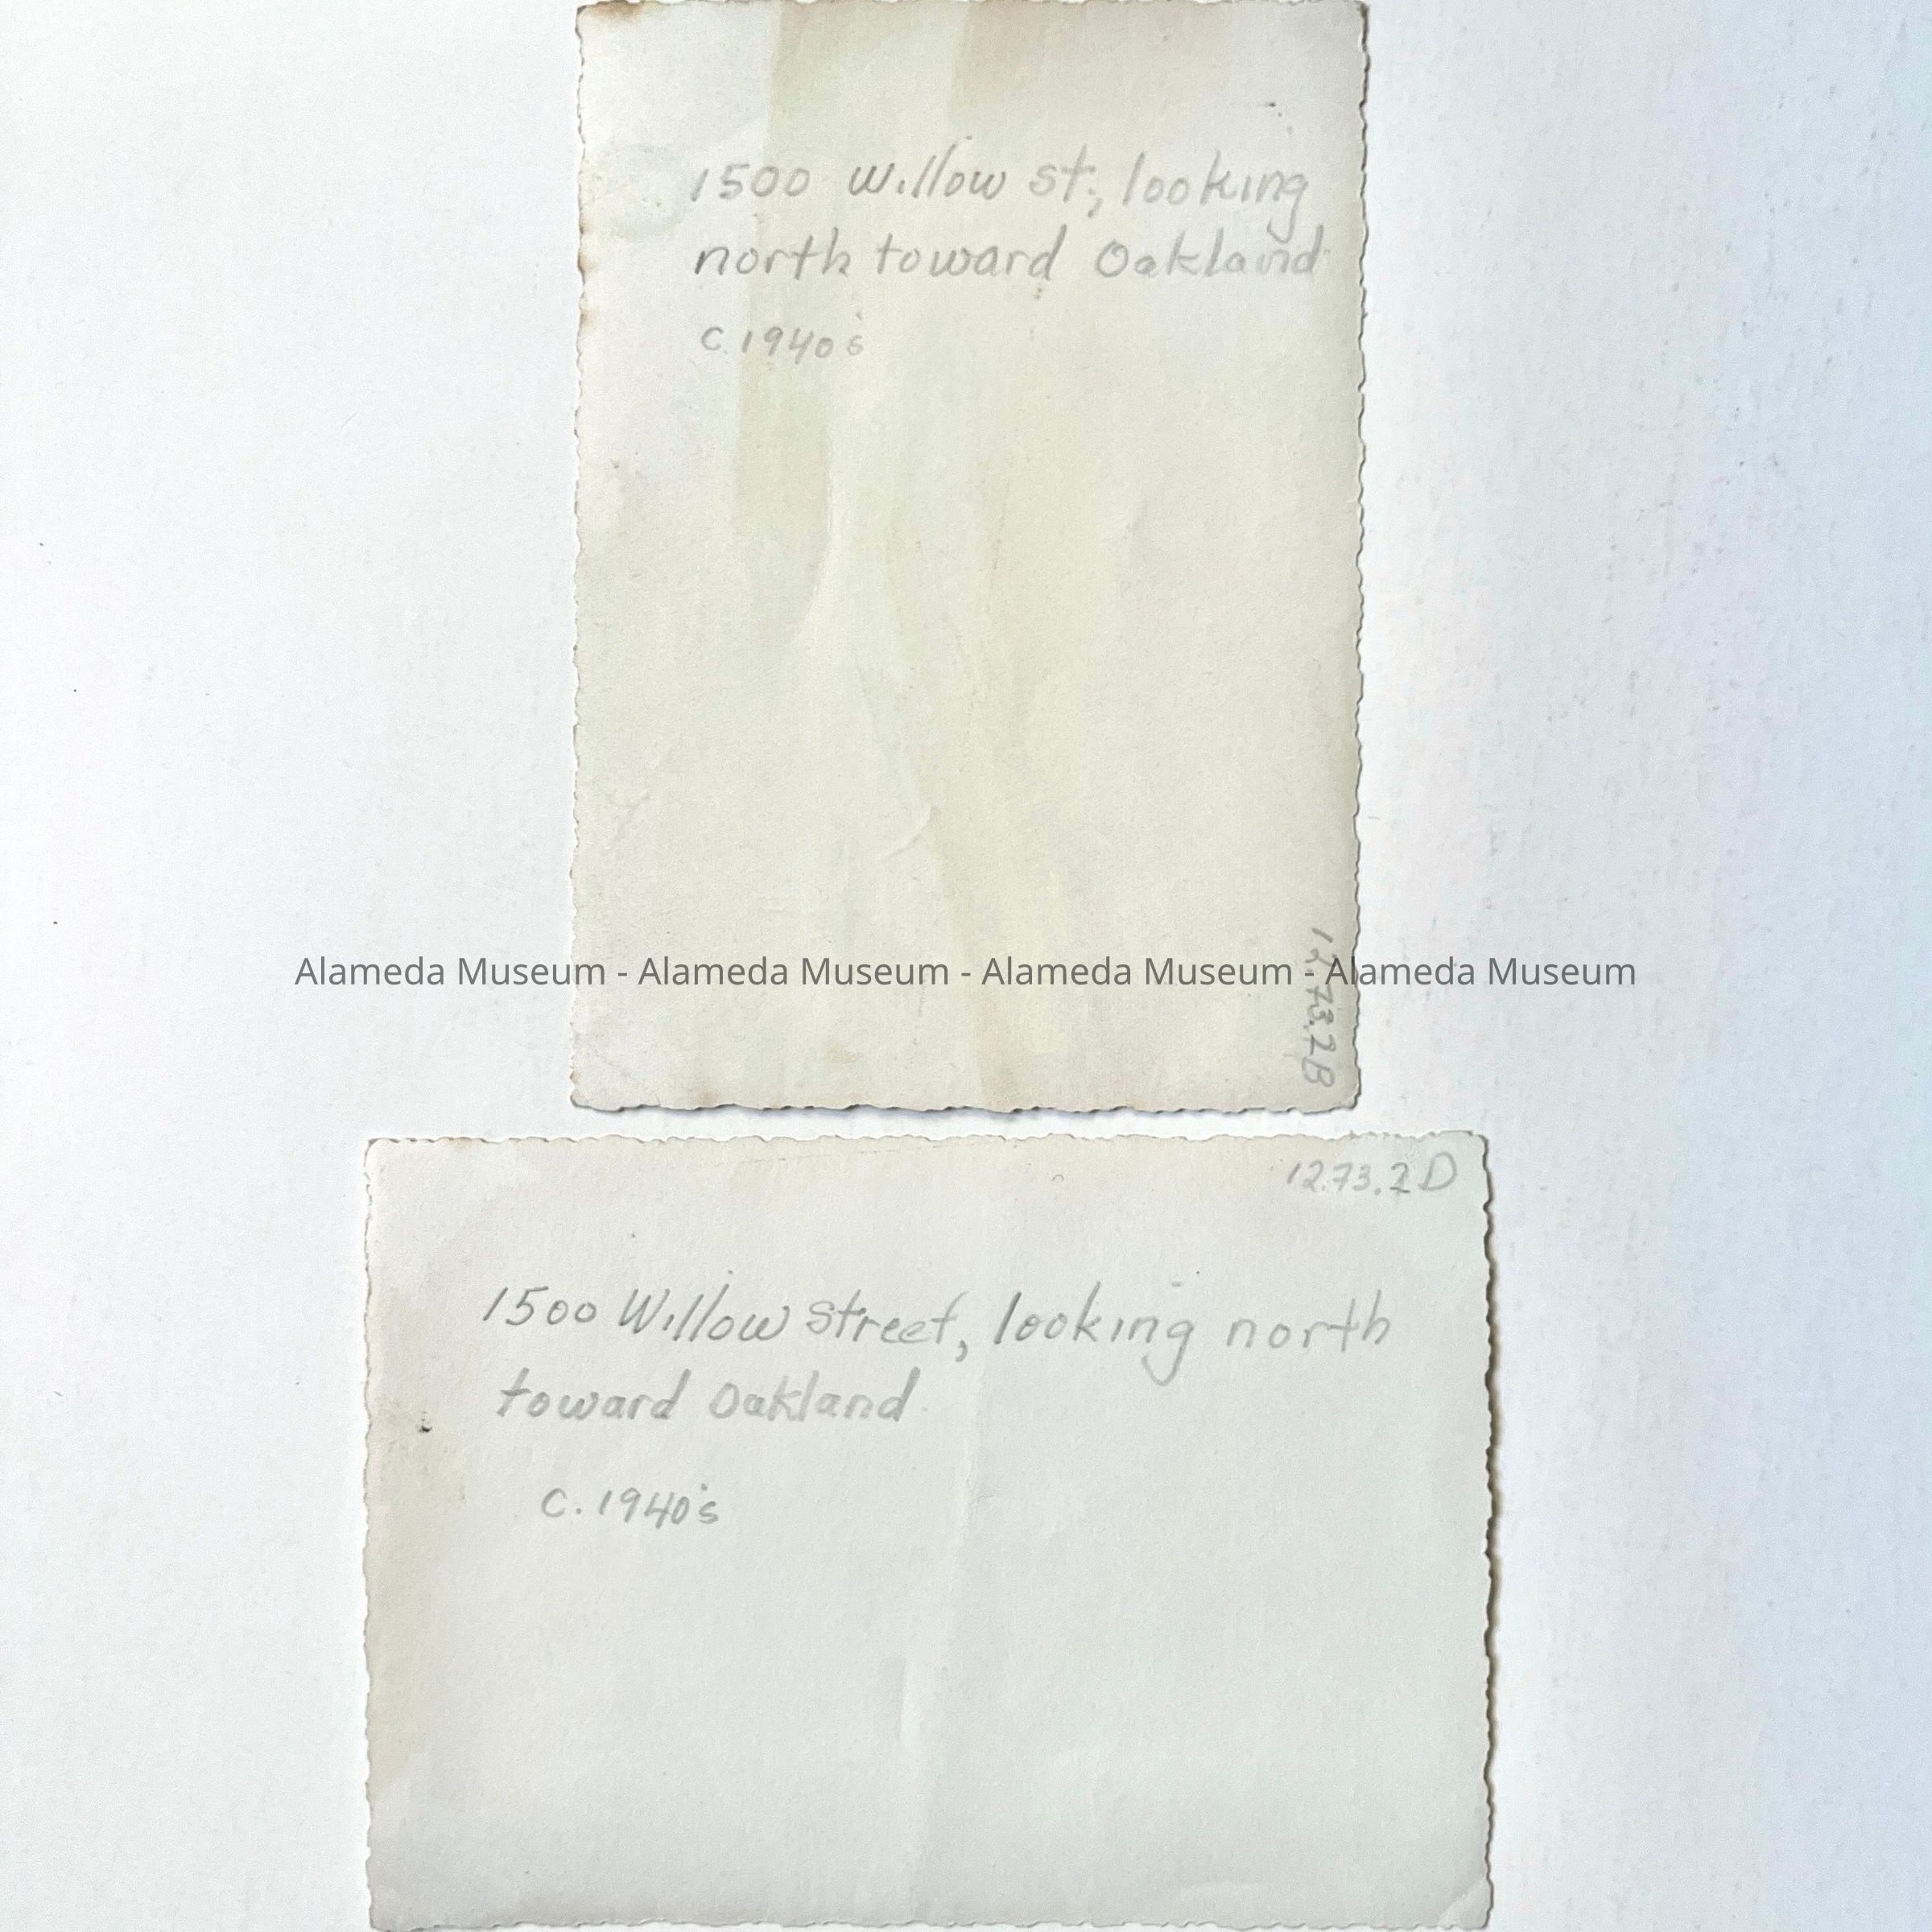 1500 Willow st., looking
north toward Oakland
c. 1940's
12.73.2B
Alameda Museum - Alameda Museum - Alameda Museum - Alameda Museum
12.73.2D
1500 Willow Street, looking north
toward Oakland
c. 1940's